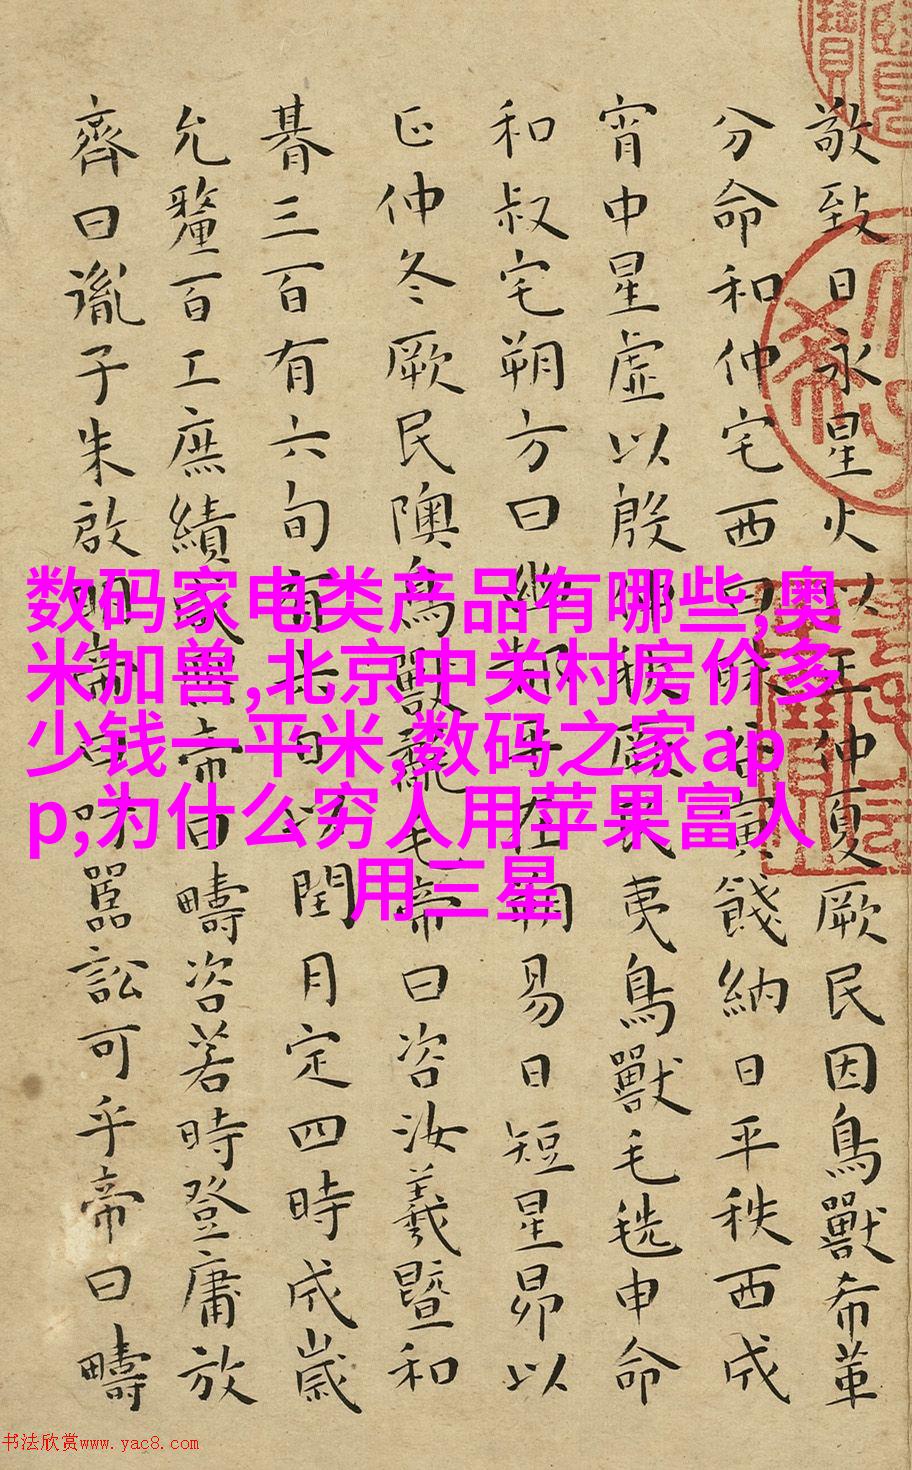 敬致日永星火以正仲夏厥民因鳥獸希革
分命和仲宅西曰昧谷寅餞納日平秩西成
宵中星虛以殷仲秋厥民夷鳥獸毛毨申命
和叔宅朔方曰幽都平在朔易日短星昴以
正仲冬厥民隩鳥獸氄毛帝曰咨汝羲暨和
朞三百有六旬有六日以閏月定四時成歲
允釐百工庶績咸熙帝曰疇咨若時登庸放
齊曰胤子朱啟明帝曰吁嚚訟可乎帝曰疇
数码家电类产品有哪些,奥
米加兽,北京中关村房价多
少钱一平米,数码之家ap
p,为什么穷人用苹果富人
用三星
书法欣赏www.yac8.com